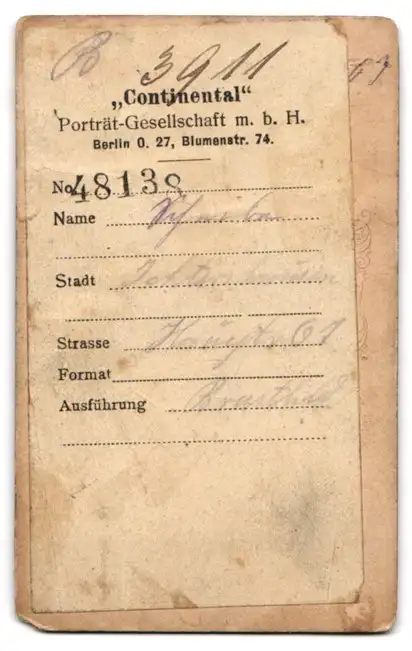 B 3911
„Continental“
Porträt-Gesellschaft m. b. H.
Berlin O. 27, Blumenstr. 74.
No. 48138
Name
Stadt
Strasse 61
Format
Ausführung Brustbild